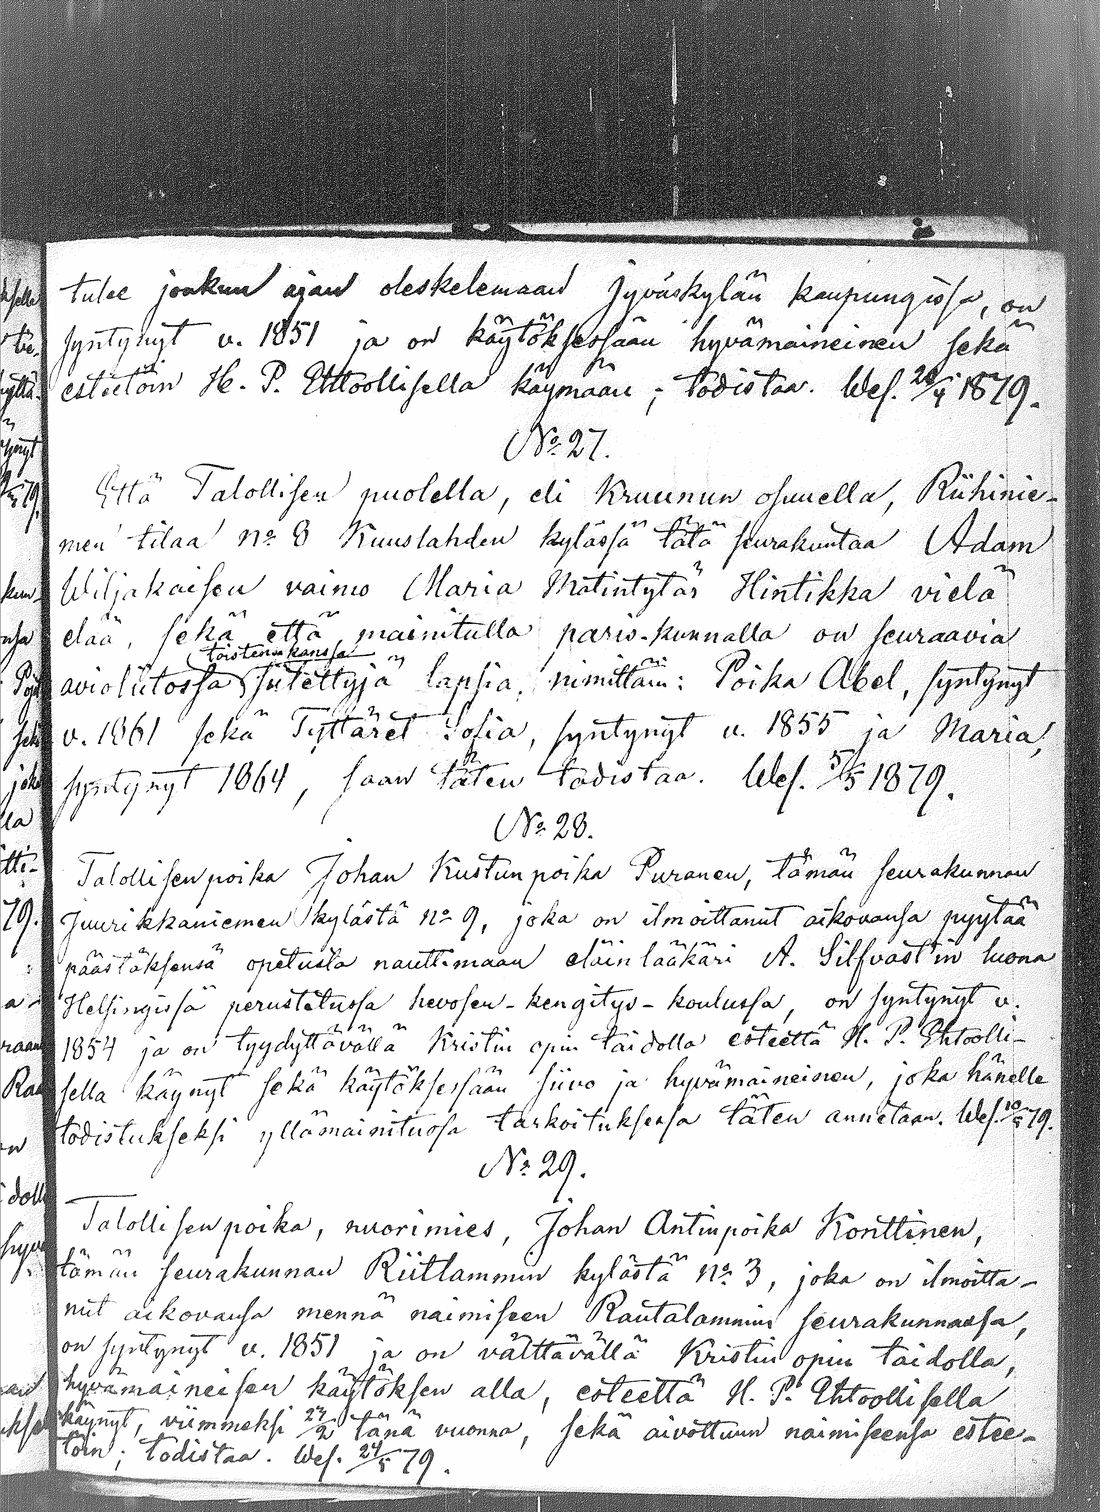 tulee jonkun ajan oleskelemaan Jyväskylän kaupungissa, on
syntynyt v. 1851 ja on käytöksessään hyvämaineinen sekä
esteetöin H. P. Ehtoollisella käymään; todistaa. Wes. 28/4 1879.
No 27.
Että Talollisen puolella, eli Kruunun osuella, Riihinie-
men tilaa no 8 Kuuslahden kylässä tätä seurakuntaa Adam
Wiljakaisen vaimo Maria Matintytär Hintikka vielä
elää, sekä että mainitulla paris-kunnalla on seuraavia
toistensa kanssa
avioliitossa siitettyjä lapsia, nimittäin: Poika Abel, syntynyt
v. 1861 sekä Tyttäret Sofia, syntynyt v. 1855 ja Maria,
syntynyt 1864, saan täten todistaa. Wes. 5/5 1879.
No 28.
Talollisen poika Johan Kustun poika Puranen, tämän seurakunnan
Juurikkaniemen kylästä no 9, joka on ilmoittanut aikovansa pyytää
päästäksensä opetusta nauttimaan eläinlääkäri A. Silfvast'in luona
Helsingissä perustetussa hevosen-kengitys-koulussa, on syntynyt v.
1854 ja on tyydyttävällä Kristin opin taidolla esteettä H. P. Ehtoolli-
sella käynyt sekä käytöksessään siivo ja hyvämaineinen, joka hänelle
todistukseksi yllämainitussa tarkoituksessa täten annetaan. Wes. 10/5 79.
No 29.
Talollisen poika, nuorimies, Johan Antinpoika Konttinen,
tämän seurakunnan Riitlammin kylästä no 3, joka on ilmoitta-
nut aikovansa mennä naimiseen Rautalammin seurakunnassa,
on syntynyt v. 1851 ja on välttävällä Kristin opin taidolla,
hyvämaineisen käytöksen alla, esteettä H. P. Ehtoollisella
käynyt, viimmeksi 24/2 tänä vuonna, sekä aivottuun naimiseensa estee-
töin; todistaa. Wes. 24/5 79.